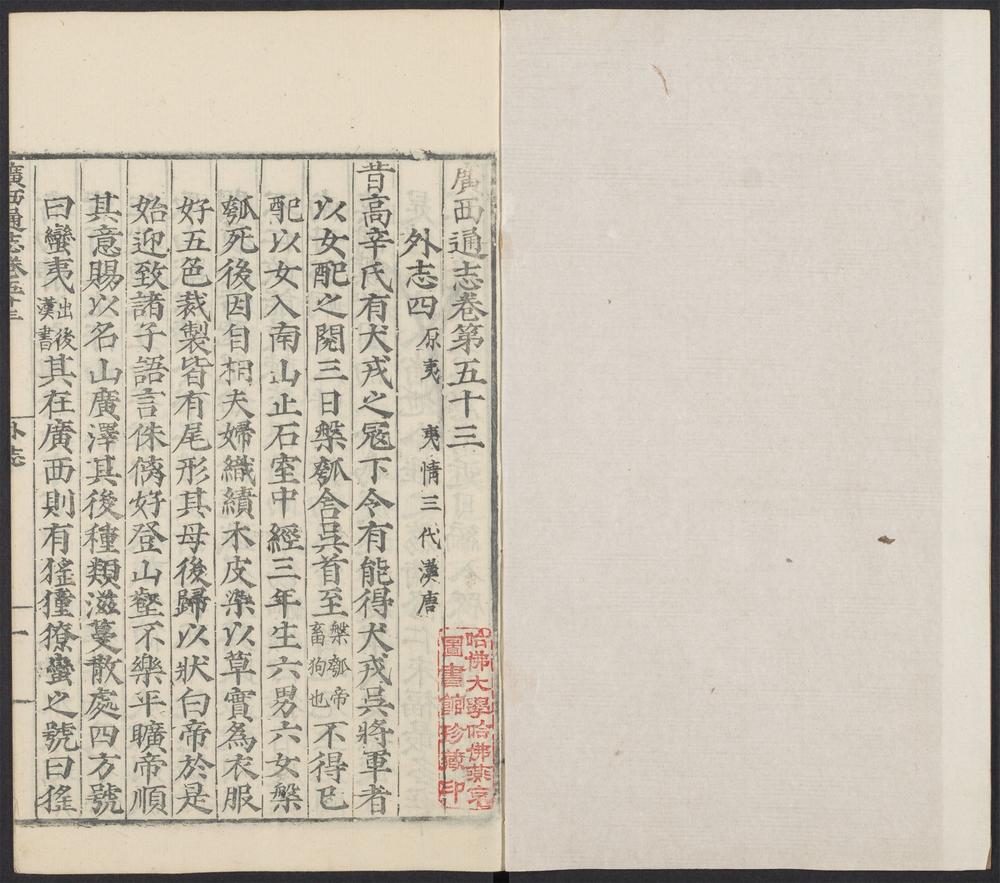 廣西通志卷第五十三
外志四 原夷 夷情三代漢唐
昔高辛氏有犬戎之寇下令有能得犬戎吳將軍者
以女配之閱三日槃瓠含吳首至槃瓠帝畜狗也不得已
配以女入南山止石室中經三年生六男六女槃
瓠死後因自相夫婦織績木皮染以草實為衣服
好五色裁製皆有尾形其母後歸以狀白帝於是
始迎致諸子語言侏㒧好登山壑不樂平曠帝順
其意賜以名山廣澤其後種類滋蔓散處四方號
曰蠻夷出後漢書其在廣西則有猺獞獠蠻之號曰猺
廣西通志卷五十三
外志
一
哈佛大學哈佛燕京
圖書館珍藏印